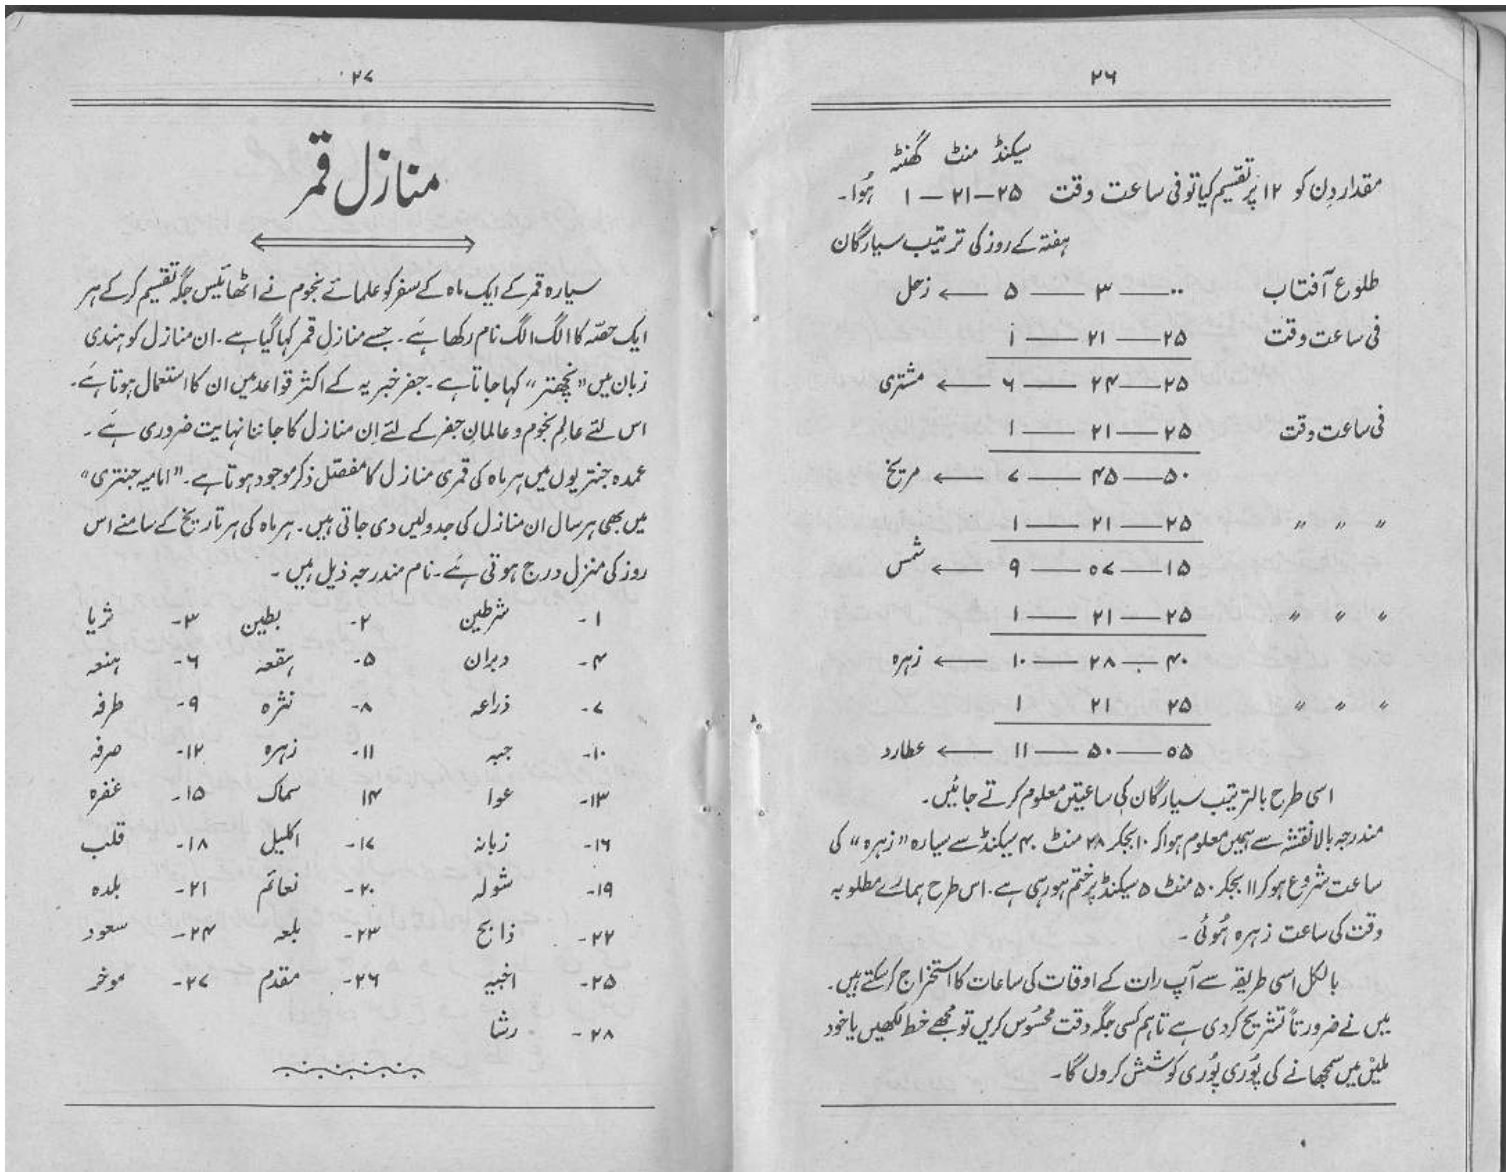 ۲۶
سیکنڈ منٹ گھنٹہ
مقدار دن کو ۱۲ پر تقسیم کیا تو فی ساعت وقت ۲۵—۲۱—۱ ہُوا۔
ہفتہ کے روز کی ترتیب سیارگان
طلوع آفتاب ۰۰—۳—۵ ← زحل
فی ساعت وقت ۲۵—۲۱—۱
۲۵—۲۴—۶ ← مشتری
فی ساعت وقت ۲۵—۲۱—۱
۵۰—۴۵—۷ ← مریخ
〃 〃 〃 ۲۵—۲۱—۱
۱۵—۰۷—۹ ← شمس
〃 〃 〃 ۲۵—۲۱—۱
۴۰—۲۸—۱۰ ← زہرہ
〃 〃 〃 ۲۵ ۲۱ ۱
۰۵—۵۰—۱۱ ← عطارد
اسی طرح بالترتیب سیارگان کی ساعتیں معلوم کرتے جائیں۔
مندرجہ بالا نقشہ سے ہمیں معلوم ہوا کہ ۱۰ بجکر ۲۸ منٹ ۴۰ سیکنڈ سے سیارہ "زہرہ" کی
ساعت شروع ہو کر ۱۱ بجکر ۵۰ منٹ ۵ سیکنڈ پر ختم ہو رہی ہے۔ اس طرح ہمارے مطلوبہ
وقت کی ساعت زہرہ ہُوئی۔
بالکل اسی طریقہ سے آپ رات کے اوقات کی ساعات کا استخراج کر سکتے ہیں۔
میں نے ضرورتاً تشریح کر دی ہے تاہم کسی جگہ دقت محسُوس کریں تو مجھے خط لکھیں یا خود
ملیں میں سمجھانے کی پُوری پُوری کوشش کروں گا۔
۲۷
منازل قمر
سیارہ قمر کے ایک ماہ کے سفر کو علمائے نجوم نے اٹھائیس جگہ تقسیم کر کے ہر
ایک حصّہ کا الگ الگ نام رکھا ہے۔ جسے منازلِ قمر کہا گیا ہے۔ ان منازل کو ہندی
زبان میں "نچھتر" کہا جاتا ہے۔ جفر خبریہ کے اکثر قواعد میں ان کا استعمال ہوتا ہے۔
اس لئے عالِم نجوم و عالمانِ جفر کے لئے اِن منازل کا جاننا نہایت ضروری ہے۔
عمدہ جنتریوں میں ہر ماہ کی قمری منازل کا مفصّل ذکر موجود ہوتا ہے۔ "امامیہ جنتری"
میں بھی ہر سال ان منازل کی جدولیں دی جاتی ہیں۔ ہر ماہ کی ہر تاریخ کے سامنے اس
روز کی منزل درج ہوتی ہے۔ نام مندرجہ ذیل ہیں۔
۱- شرطین ۲- بطین ۳- ثریا
۴- دبران ۵- ہقعہ ۶- ہنعہ
۷- ذراعہ ۸- نثرہ ۹- طرفہ
۱۰- جبہ ۱۱- زہرہ ۱۲- صرفہ
۱۳- عوا ۱۴ سماک ۱۵- غفرہ
۱۶- زبانہ ۱۷- اکلیل ۱۸- قلب
۱۹- شولہ ۲۰- نعائم ۲۱- بلدہ
۲۲- ذابح ۲۳- بلعہ ۲۴- سعود
۲۵- اخبیہ ۲۶- مقدم ۲۷- موخر
۲۸- رشا